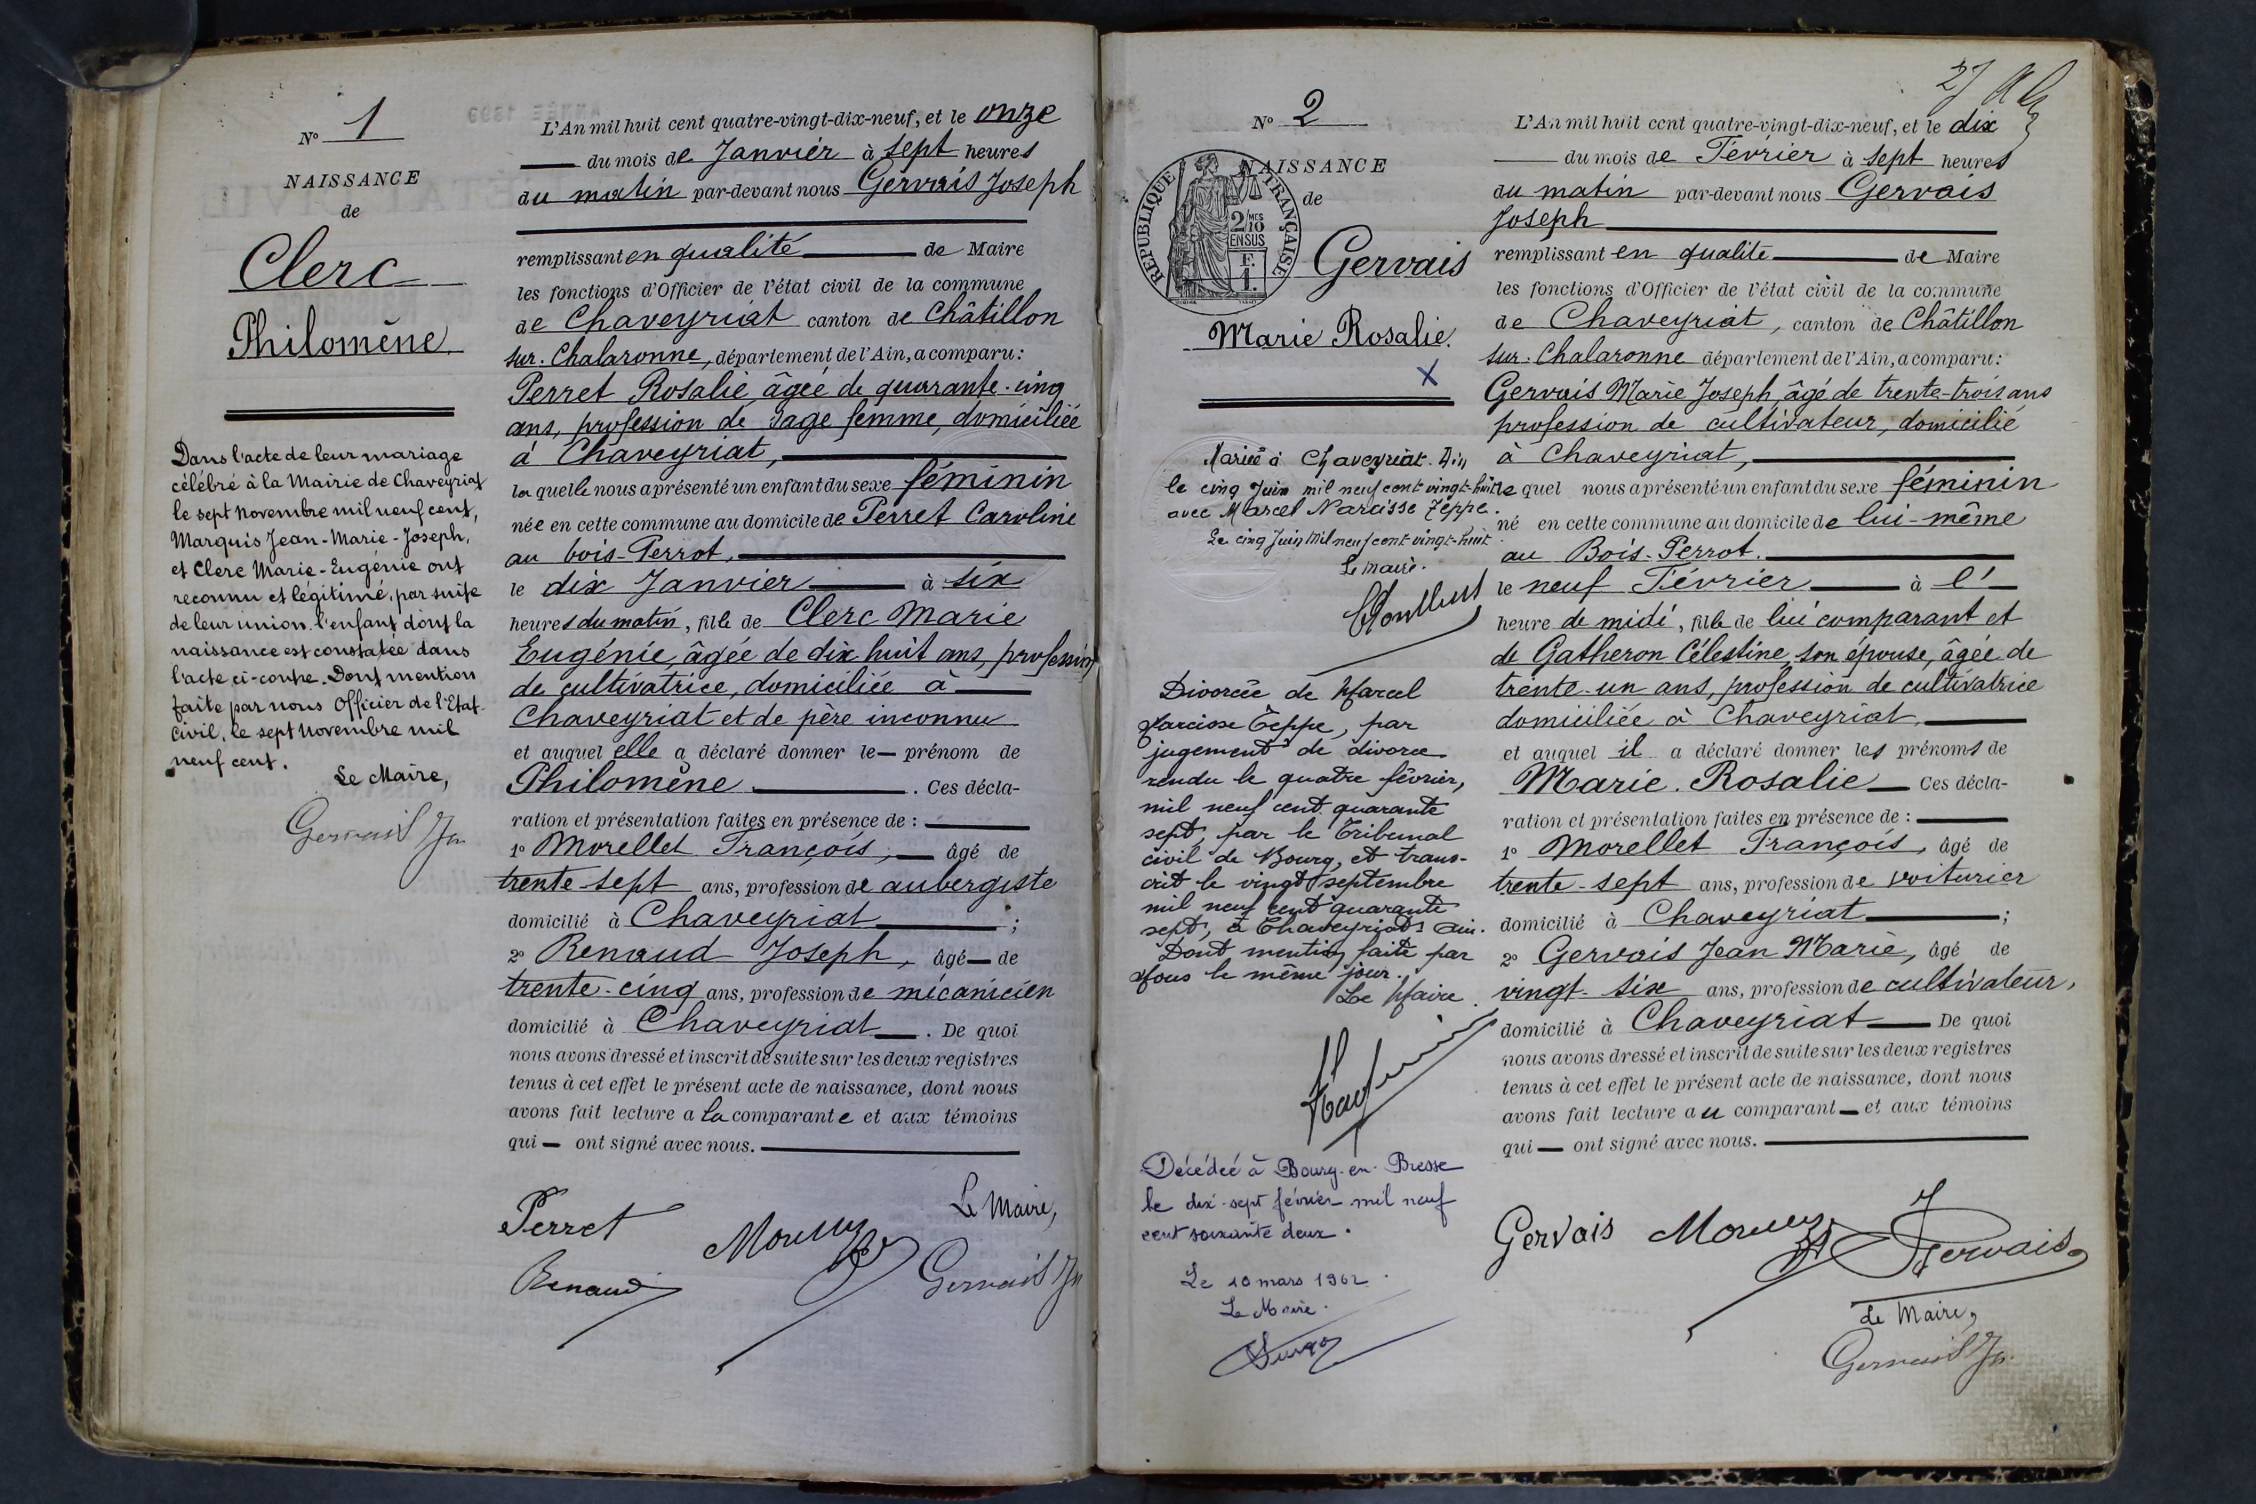 N° 1
NAISSANCE
de
Clerc
Philomène
Dans l'acte de leur mariage
célébré à la Mairie de Chaveyriat
le sept novembre mil neuf cent,
Marquis Jean-Marie-Joseph,
et Clerc Marie-Eugénie ont
reconnu et légitimé, par suite
de leur union l'enfant dont la
naissance est constatée dans
l'acte ci-contre. Dont mention
faite par nous Officier de l'Etat-
civil, le sept novembre mil
neuf cent.
Le Maire,
Gervais Jh
L'An mil huit cent quatre-vingt-dix-neuf, et le onze
du mois de Janvier à sept heures
du matin par-devant nous Gervais Joseph
remplissant en qualité de Maire
les fonctions d'Officier de l'état civil de la commune
de Chaveyriat canton de Châtillon
sur-Chalaronne, département de l'Ain, a comparu:
Perret Rosalie âgée de quarante-cinq
ans, profession de sage femme, domiciliée
à Chaveyriat,
laquelle nous a présenté un enfant du sexe féminin
née en cette commune au domicile de Perret Caroline
au bois-Perrot,
le dix Janvier à six
heures du matin, fille de Clerc Marie
Eugénie, âgée de dix-huit ans, profession
de cultivatrice, domiciliée à
Chaveyriat et de père inconnu
et auquel elle a déclaré donner le prénom de
Philomène. Ces décla-
ration et présentation faites en présence de :
1° Morellet François, âgé de
trente-sept ans, profession de aubergiste
domicilié à Chaveyriat ;
2° Renaud Joseph, âgé de
trente-cinq ans, profession de mécanicien
domicilié à Chaveyriat. De quoi
nous avons dressé et inscrit de suite sur les deux registres
tenus à cet effet le présent acte de naissance, dont nous
avons fait lecture a la comparante et aux témoins
qui ont signé avec nous.
Le Maire,
Perret
Renaud
Gervais Jh
27
N° 2
NAISSANCE
de
RÉPUBLIQUE FRANÇAISE
2/10 MES
EN SUS
F.
1.
Gervais
Marie Rosalie.
X
Mariée à Chaveyriat. Ain
le cinq Juin mil neuf cent vingt-huit
avec Marcel Narcisse Teppe.
Le cinq Juin mil neuf cent vingt-huit
Le Maire.
Divorcée de Marcel
Narcisse Teppe, par
jugement de divorce
rendu le quatre février,
mil neuf cent quarante
sept, par le Tribunal
civil de Bourg, et trans-
crit le vingt septembre
mil neuf cent quarante
sept, à Chaveyriat Ain.
Dont mention faite par
Nous le même jour.
Le Maire.
Décédée à Bourg-en-Bresse
le dix-sept février mil neuf
cent soixante deux.
Le 10 mars 1962.
Le Maire.
L'An mil huit cent quatre-vingt-dix-neuf, et le dix
du mois de Février à sept heures
du matin par-devant nous Gervais
Joseph
remplissant en qualité de Maire
les fonctions d'Officier de l'état civil de la commune
de Chaveyriat, canton de Châtillon
sur-Chalaronne département de l'Ain, a comparu:
Gervais Marie Joseph, âgé de trente-trois ans
profession de cultivateur, domicilié
à Chaveyriat,
le quel nous a présenté un enfant du sexe féminin
né en cette commune au domicile de lui-même
au Bois-Perrot.
le neuf Février à l'
heure de midi, fille de lui comparant et
de Gatheron Célestine, son épouse, âgée de
trente-un ans, profession de cultivatrice
domiciliée à Chaveyriat,
et auquel il a déclaré donner les prénoms de
Marie. Rosalie Ces décla-
ration et présentation faites en présence de :
1° Morellet François, âgé de
trente-sept ans, profession de voiturier
domicilié à Chaveyriat ;
2° Gervais Jean Marie, âgé de
vingt-six ans, profession de cultivateur,
domicilié à Chaveyriat De quoi
nous avons dressé et inscrit de suite sur les deux registres
tenus à cet effet le présent acte de naissance, dont nous
avons fait lecture au comparant et aux témoins
qui ont signé avec nous.
Gervais
J Gervais
Le Maire,
Gervais Jh